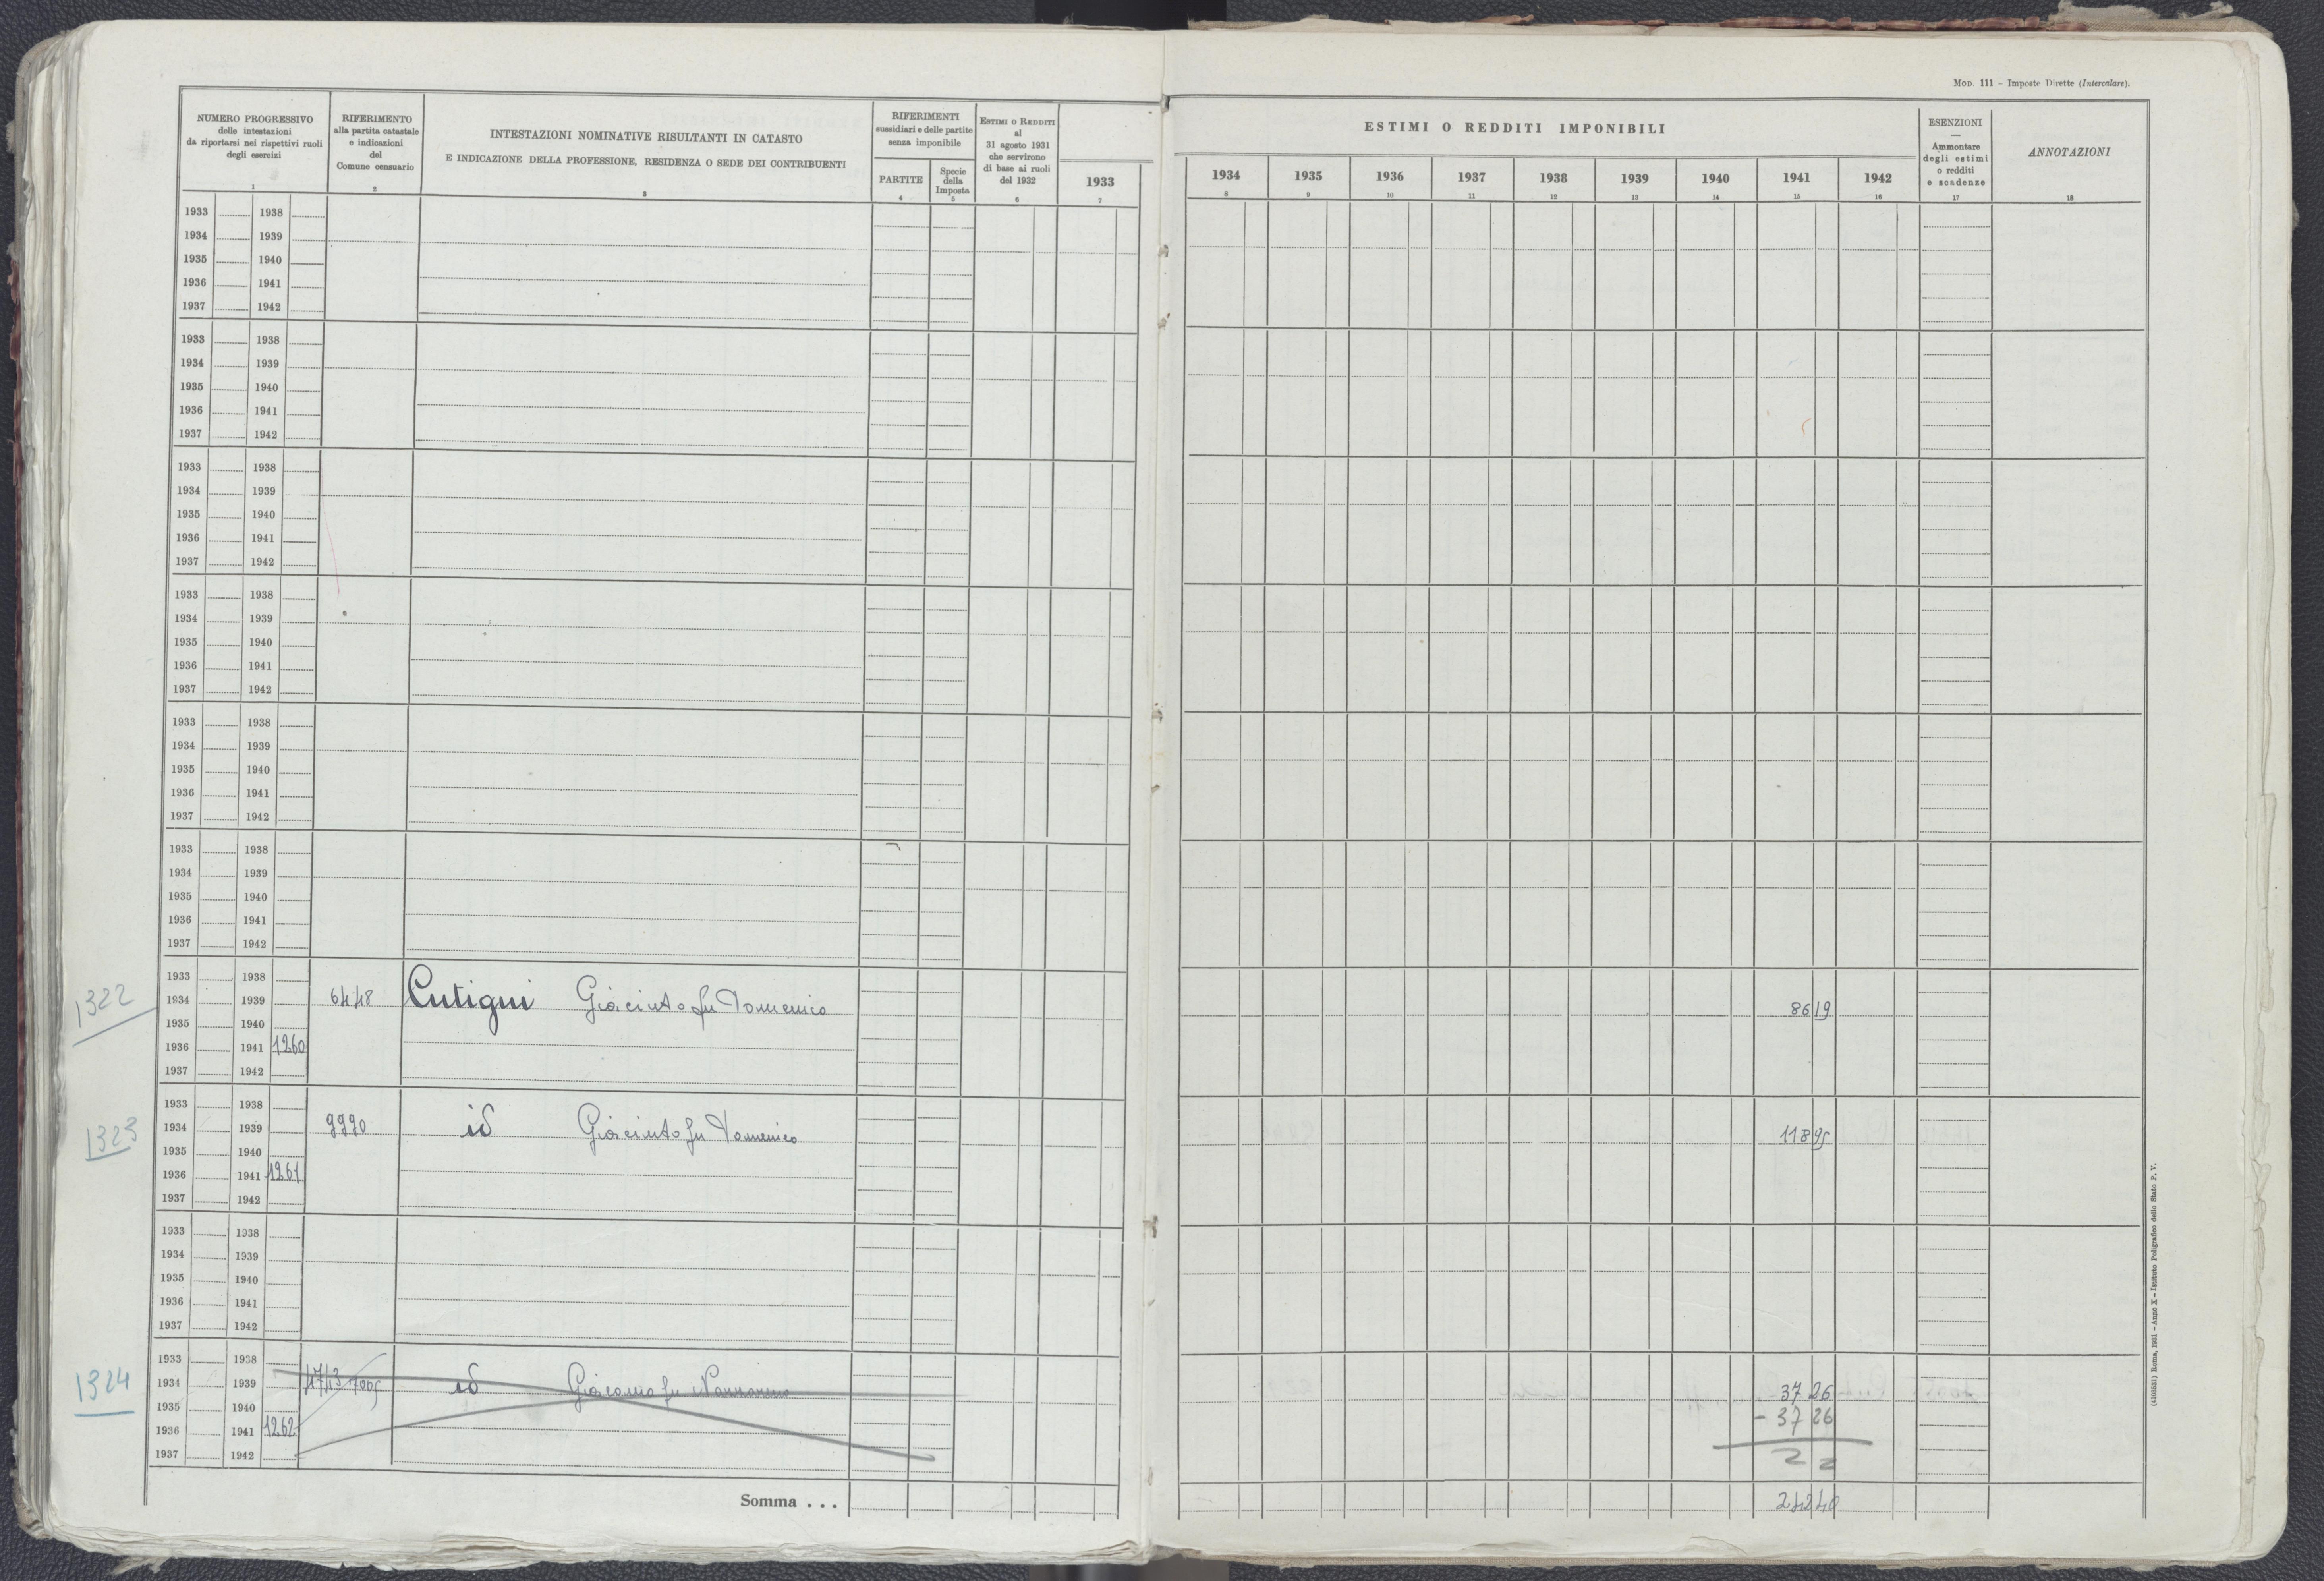 Mod. 111 - Imposte Dirette (Intercalare).
NUMERO PROGRESSIVO
delle intestazioni
da riportarsi nei rispettivi ruoli
degli esercizi
1
RIFERIMENTO
alla partita catastale
e indicazioni
del
Comune censuario
2
INTESTAZIONI NOMINATIVE RISULTANTI IN CATASTO
E INDICAZIONE DELLA PROFESSIONE, RESIDENZA O SEDE DEI CONTRIBUENTI
3
RIFERIMENTI
sussidiari e delle partite
senza imponibile
PARTITE
4
Specie
della
Imposta
5
Estimi o Redditi
al
31 agosto 1931
che servirono
di base ai ruoli
del 1932
6
1933
7
ESTIMI O REDDITI IMPONIBILI
1934 1935 1936 1937 1938 1939 1940 1941 1942
8 9 10 11 12 13 14 15 16
ESENZIONI
—
Ammontare
degli estimi
o redditi
e scadenze
17
ANNOTAZIONI
18
1933 1938
1934 1939
1935 1940
1936 1941
1937 1942
1933 1938
1934 1939
1935 1940
1936 1941
1937 1942
1933 1938
1934 1939
1935 1940
1936 1941
1937 1942
1933 1938
1934 1939
1935 1940
1936 1941
1937 1942
1933 1938
1934 1939
1935 1940
1936 1941
1937 1942
1933 1938
1934 1939
1935 1940
1936 1941
1937 1942
1322
1933 1938
1934 1939 6448 Cutigni Giacinto fu Domenico 86 19
1935 1940
1936 1941 1260
1937 1942
1323
1933 1938
1934 1939 9990 id Giacinto fu Domenico 118 95
1935 1940
1936 1941 1261
1937 1942
1933 1938
1934 1939
1935 1940
1936 1941
1937 1942
1324
1933 1938
1934 1939 id Giacomo fu 37 26
1935 1940 - 37 26
1936 1941 1262
1937 1942
Somma . . . 242 40
(4102531) Roma, 1931 - Anno X - Istituto Poligrafico dello Stato P. V.